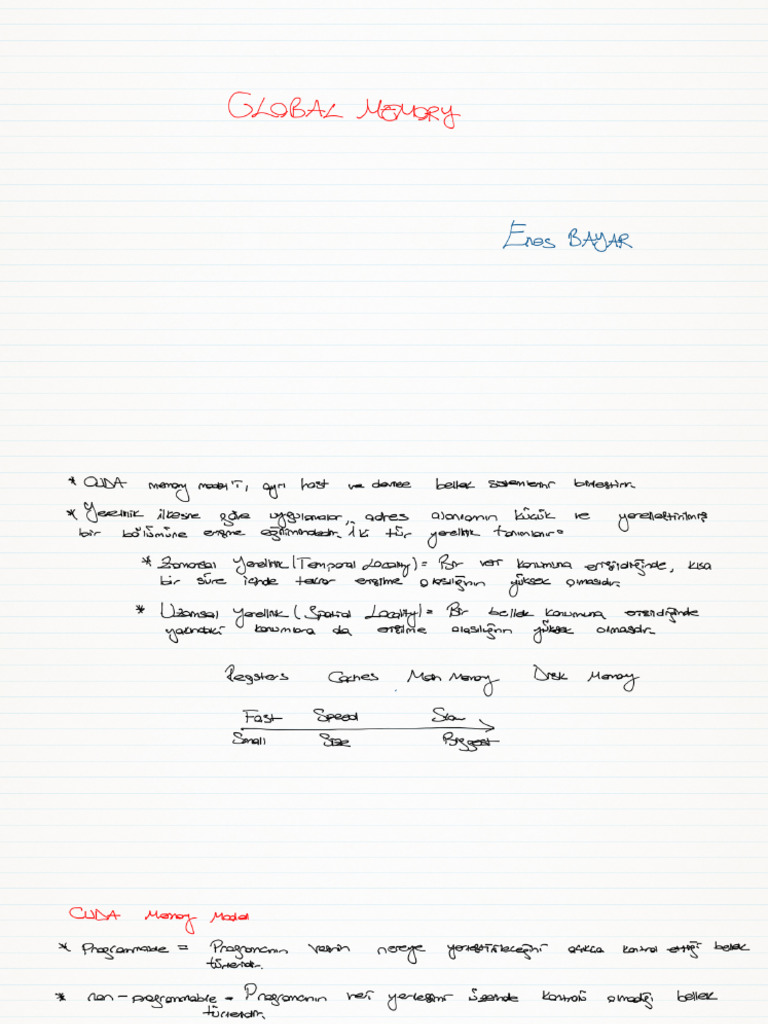 GLOBAL MEMORY
Enes BAYAR
* CUDA memory model'i, ayrı host ve device bellek sistemlerini birleştirir.
* Yerellik ilkesine göre uygulamalar, adres alanlarının küçük ve yerelleştirilmiş
bir bölümüne erişme eğilimindedir. İki tür yerellik tanımlanır:
* Zamansal Yerellik (Temporal Locality) = Bir veri konumuna erişildiğinde, kısa
bir süre içinde tekrar erişilme olasılığının yüksek olmasıdır.
* Uzamsal Yerellik (Spatial Locality) = Bir bellek konumuna erişildiğinde
yakındaki konumlara da erişilme olasılığının yüksek olmasıdır.
Registers Caches Main Memory Disk Memory
Fast Speed Slow
Small Size Biggest
CUDA Memory Model
* Programmable = Programcının verinin nereye yerleştirileceğini açıkça kontrol ettiği bellek
türleridir.
* non-programmable = Programcının veri yerleşimi üzerinde kontrolü olmadığı bellek
türleridir.